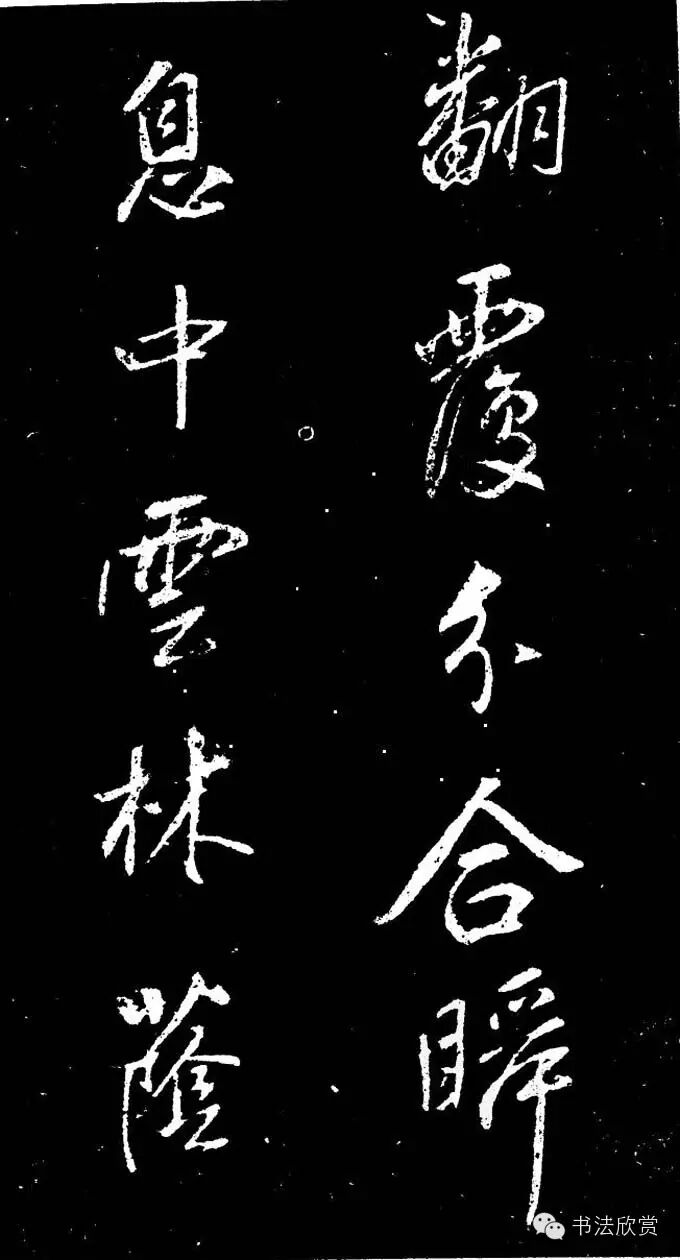 翻覆分合瞬
息中雲林蔭
书法欣赏